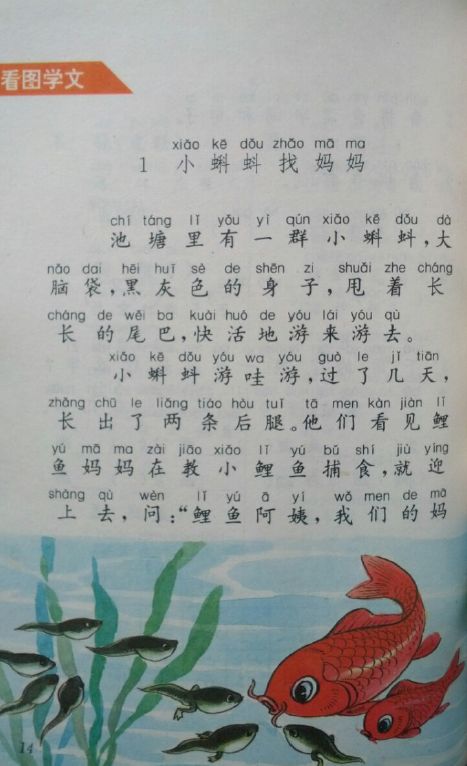 看图学文
xiǎo kē dǒu zhǎo mā ma
1 小蝌蚪找妈妈
chí táng lǐ yǒu yì qún xiǎo kē dǒu dà
池塘里有一群小蝌蚪,大
nǎo dai hēi huī sè de shēn zi shuǎi zhe cháng
脑袋,黑灰色的身子,甩着长
cháng de wěi ba kuài huó de yóu lái yóu qù
长的尾巴,快活地游来游去。
xiǎo kē dǒu yóu wa yóu guò le jǐ tiān
小蝌蚪游哇游,过了几天,
zhǎng chū le liǎng tiáo hòu tuǐ tā men kàn jiàn lǐ
长出了两条后腿。他们看见鲤
yú mā ma zài jiāo xiǎo lǐ yú bǔ shí jiù yíng
鱼妈妈在教小鲤鱼捕食,就迎
shàng qù wèn lǐ yú ā yí wǒ men de mā
上去,问:“鲤鱼阿姨,我们的妈
14